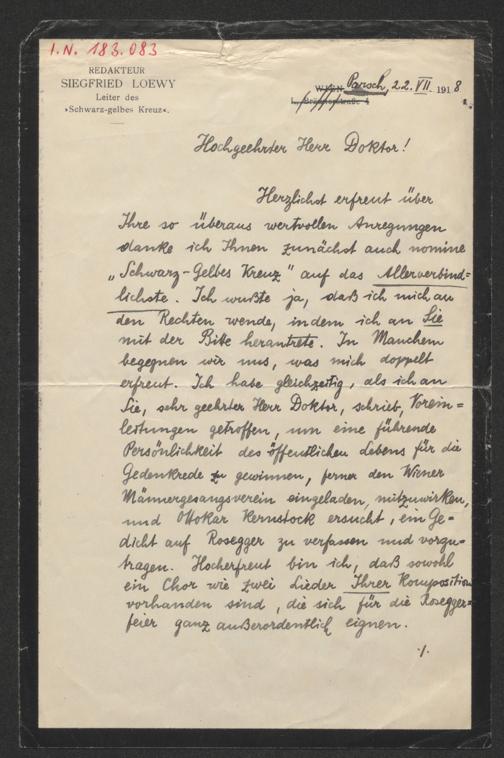 I.N. 183.083
REDAKTEUR
SIEGFRIED LOEWY
Leiter des
»Schwarz-gelbes Kreuz«.
WIEN, Parsch, 22. VII. 1918.
I.,
Hochgeehrter Herr Doktor!
Herzlichst erfreut über
Ihre so überaus wertvollen Anregungen
danke ich Ihnen zunächst auch nomine
„Schwarz-Gelbes Kreuz" auf das Allerverbind=
lichste. Ich wußte ja, daß ich mich an
den Rechten wende, indem ich an Sie
mit der Bitte herantrete. In Manchem
begegnen wir uns, was mich doppelt
erfreut. Ich habe gleichzeitig, als ich an
Sie, sehr geehrter Herr Doktor, schrieb, Vorein=
leitungen getroffen, um eine führende
Persönlichkeit des öffentlichen Lebens für die
Gedenkrede zu gewinnen, ferner den Wiener
Männergesangsverein eingeladen, mitzuwirken,
und Ottokar Kernstock ersucht, ein Ge=
dicht auf Rosegger zu verfassen und vorzu=
tragen. Hocherfreut bin ich, daß sowohl
ein Chor wie zwei Lieder Ihrer Komposition
vorhanden sind, die sich für die Rosegger=
feier ganz außerordentlich eignen.
./.